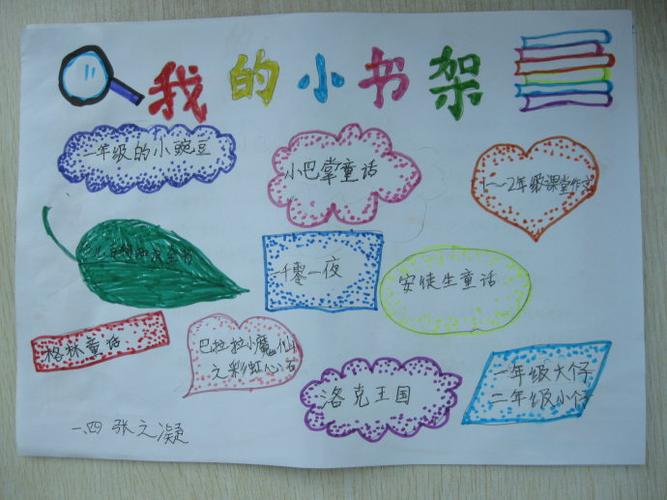 我的小书架
二年级的小豌豆
小巴掌童话
1～2年级课堂作文
知识全书
一千零一夜
安徒生童话
格林童话
巴拉拉小魔仙
之彩虹心石
洛克王国
一年级大个仔
二年级小个仔
一.四 张之凝